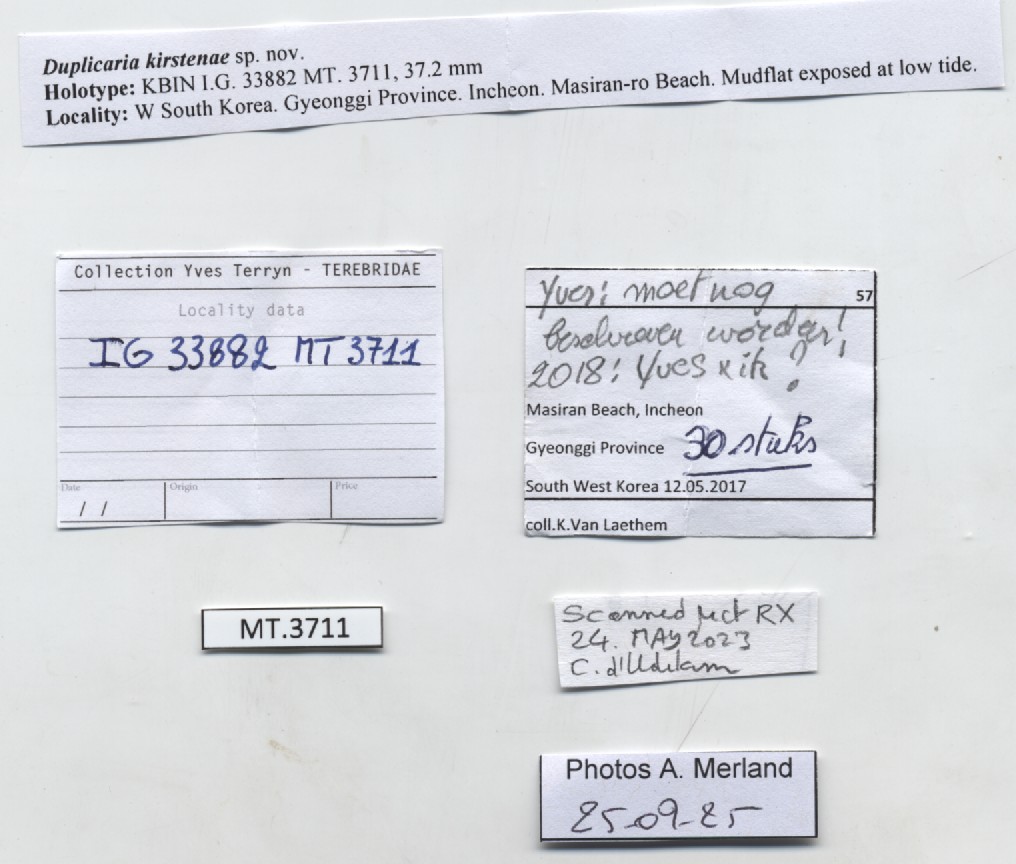 Duplicaria kirstenae sp. nov.
Holotype: KBIN I.G. 33882 MT. 3711, 37.2 mm
Locality: W South Korea. Gyeonggi Province. Incheon. Masiran-ro Beach. Mudflat exposed at low tide.
Collection Yves Terryn - TEREBRIDAE
Locality data
IG 33882 MT 3711
Date
Origin
Price
/ /
Yves: moet nog
57
beschreven worden!
2018: Yves x ik?
Masiran Beach, Incheon
Gyeonggi Province 30 stuks
South West Korea 12.05.2017
coll.K.Van Laethem
MT.3711
Scanned µct RX
24. MAY 2023
C.
Photos A. Merland
25-09-25